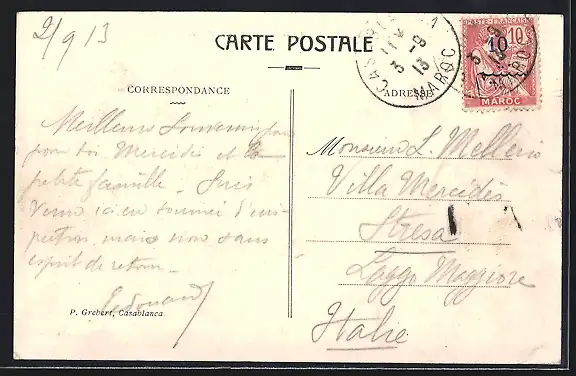 2/9 13
CARTE POSTALE
CORRESPONDANCE
ADRESSE
CASABLANCA
11 3 -9 13
MAROC
POSTE FRANÇAISE
10 10
MAROC
Meilleurs Souvenirs
pour toi Mercédès et la
petite famille. Suis
venu ici en tournée d'ins-
pection mais non sans
esprit de retour.
Edouard
P. Grebert, Casablanca.
Monsieur L. Mellerio
Villa Mercédès
Stresa
Laggo Maggiore
Italie